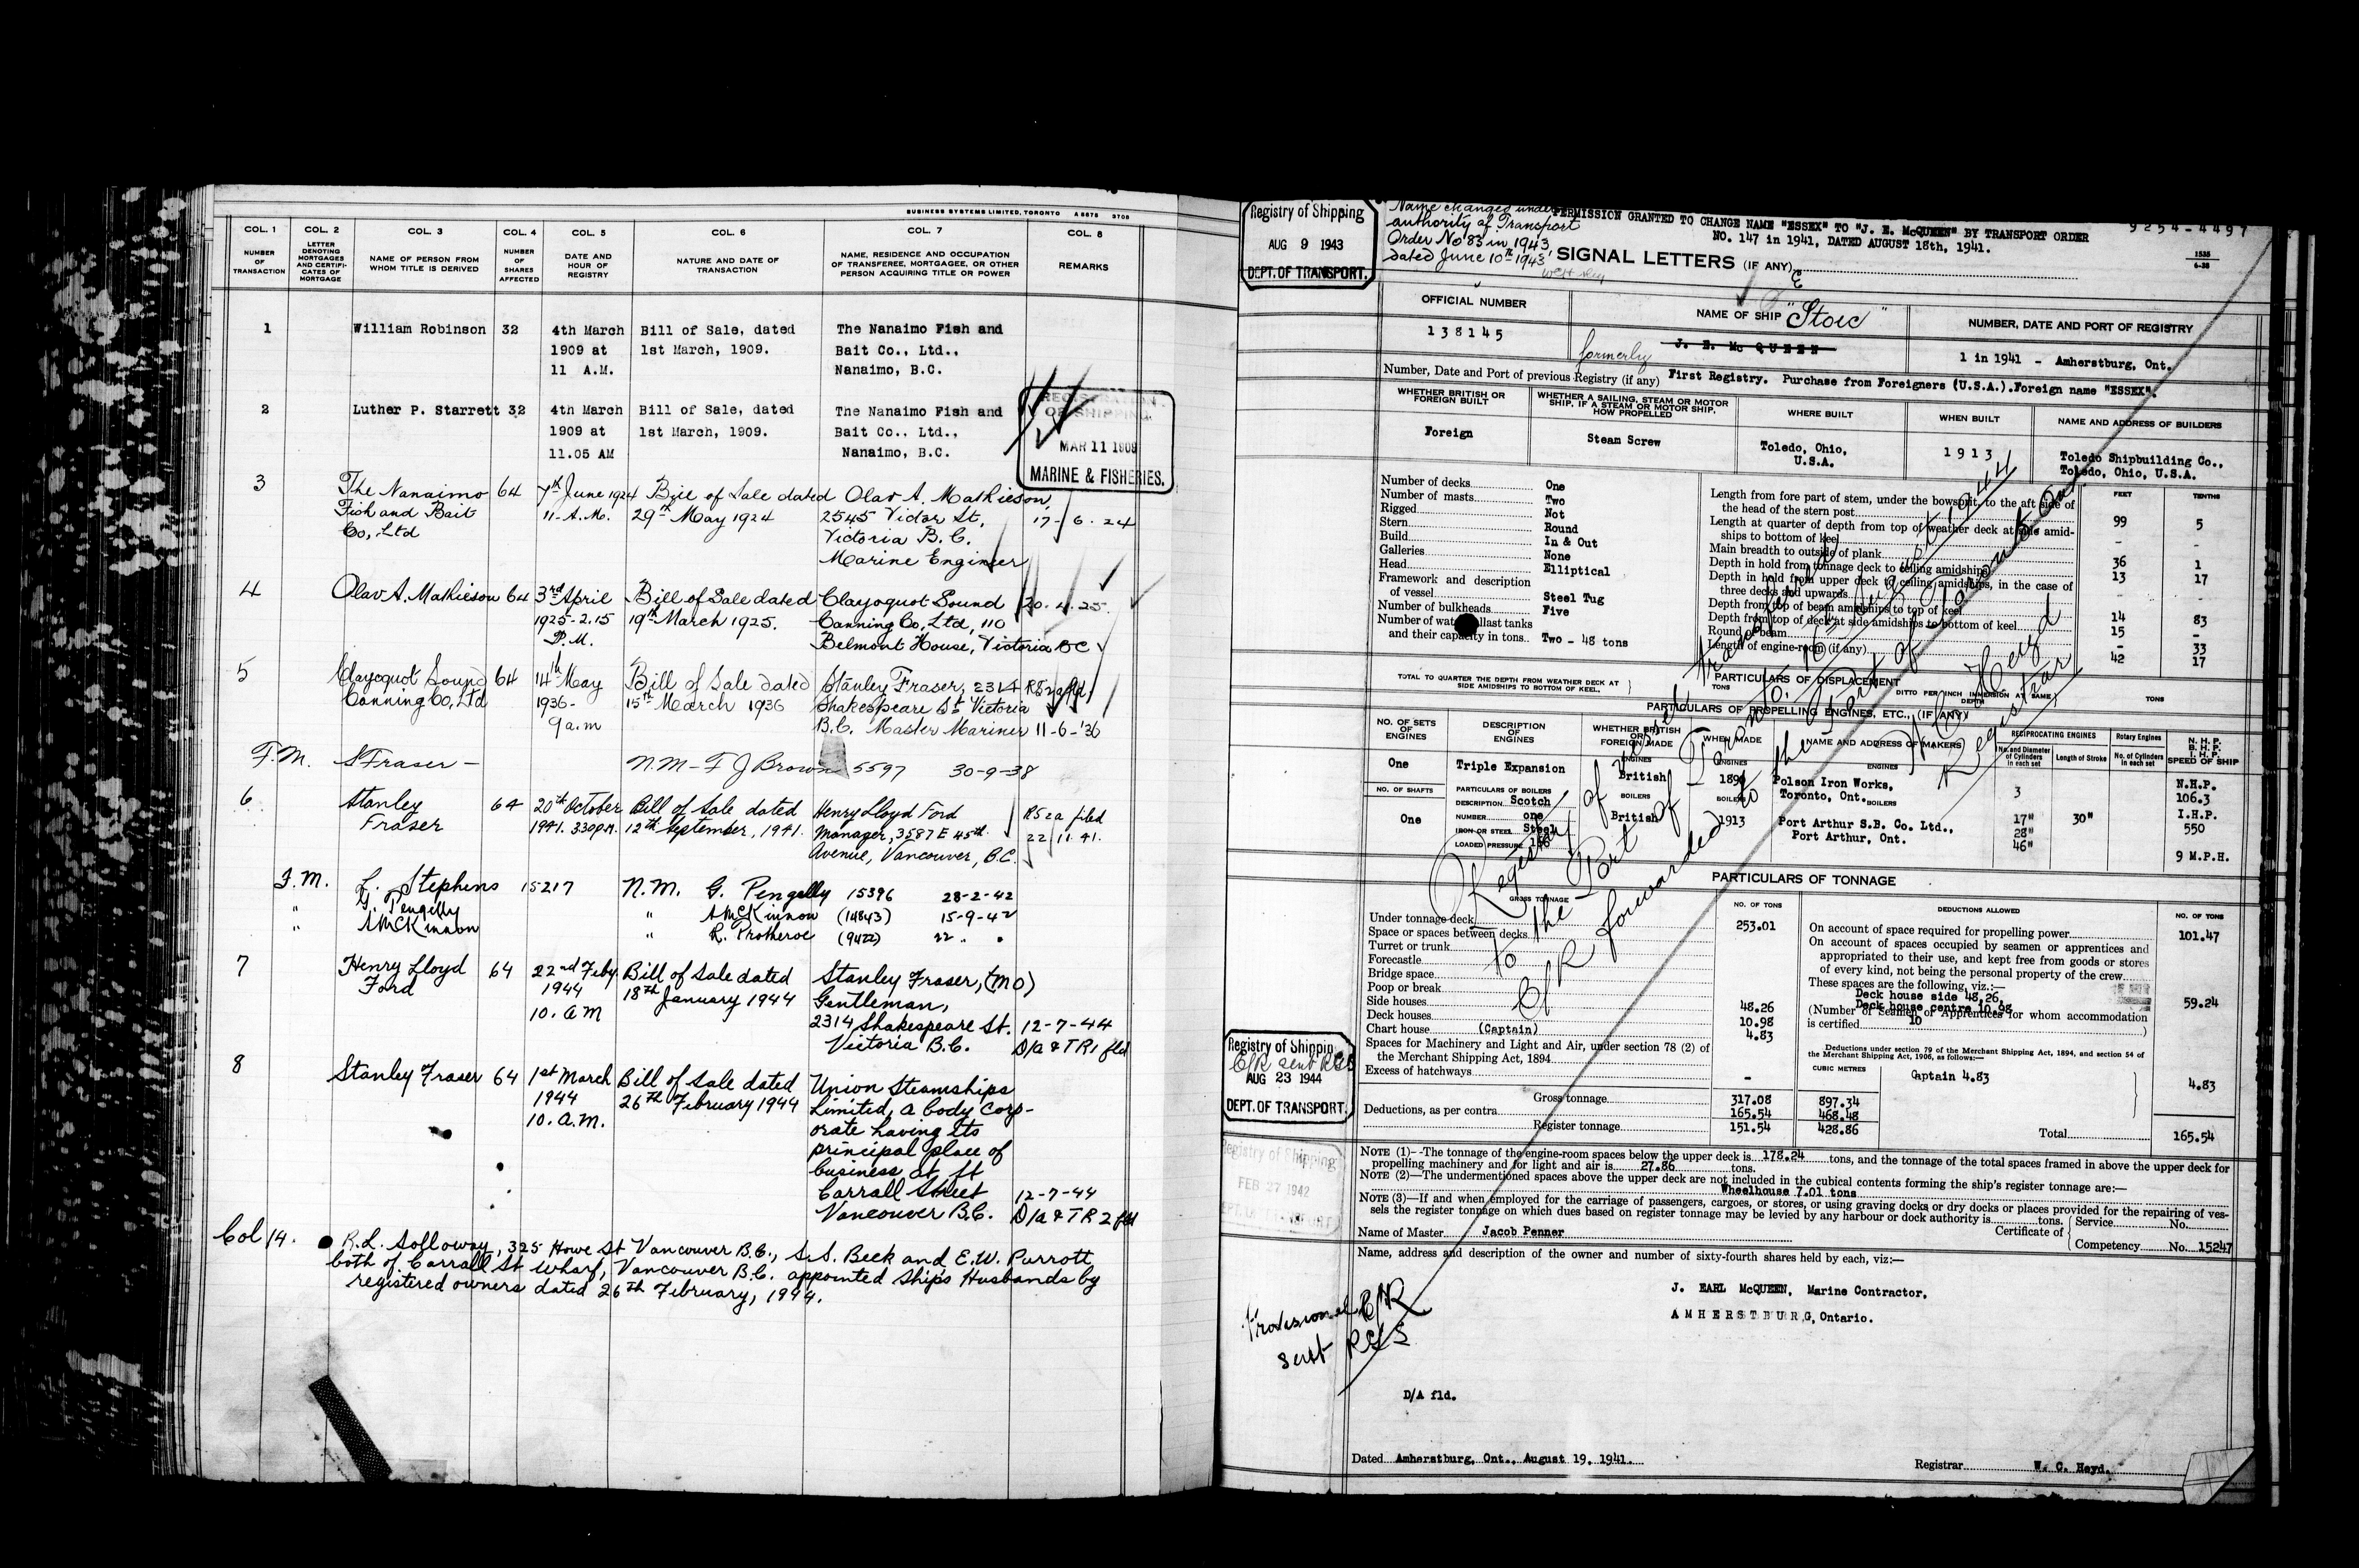 BUSINESS SYSTEMS LIMITED, TORONTO A 8878 3708
COL. 1 COL. 2 COL. 3 COL. 4 COL. 5 COL. 6 COL. 7 COL. 8
NUMBER OF TRANSACTION
LETTER DENOTING MORTGAGES AND CERTIFICATES OF MORTGAGE
NAME OF PERSON FROM WHOM TITLE IS DERIVED
NUMBER OF SHARES AFFECTED
DATE AND HOUR OF REGISTRY
NATURE AND DATE OF TRANSACTION
NAME, RESIDENCE AND OCCUPATION OF TRANSFEREE, MORTGAGEE, OR OTHER PERSON ACQUIRING TITLE OR POWER
REMARKS
1 William Robinson 32 4th March Bill of Sale, dated The Nanaimo Fish and
1909 at 1st March, 1909. Bait Co., Ltd.,
11 A.M. Nanaimo, B.C.
2 Luther P. Starrett 32 4th March Bill of Sale, dated The Nanaimo Fish and
1909 at 1st March, 1909. Bait Co., Ltd.,
11.05 AM Nanaimo, B.C.
REGISTRATION
OF SHIPPING
MAR 11 1909
MARINE & FISHERIES.
3 The Nanaimo 64 7th June 1924 Bill of Sale dated Olav A. Mathieson,
Fish and Bait 11-A.M. 29th May 1924 2545 Victor St, 17-6-24
Co, Ltd Victoria B.C.
Marine Engineer
4 Olav A. Mathieson 64 3rd April Bill of Sale dated Clayoquot Sound 20.4.25.
1925-2.15 19th March 1925. Canning Co, Ltd, 110
P.M. Belmont House, Victoria BC
5 Clayoquot Sound 64 14th May Bill of Sale dated Stanley Fraser, 2314 R52a fld.
Canning Co, Ltd 1936- 15th March 1936 Shakespeare St Victoria
9 a.m B.C. Master Mariner 11-6-'36
F.M. S Fraser - N.M - F J Brown 5597 30-9-38
6 Stanley 64 20th October Bill of Sale dated Henry Lloyd Ford R52a filed
Fraser 1941. 3.30 p.m. 12th September, 1941. Manager, 3587 E 45th. 22/11.41.
Avenue, Vancouver, B.C.
F.M. L. Stephens 15217 N.M. G. Pengelly 15396 28-2-42
" G. Pengelly " A McKinnon (14843) 15-9-42
" A McKinnon " R. Protheroe (9422) 22 " "
7 Henry Lloyd 64 22nd Feby. Bill of Sale dated Stanley Fraser, (MO)
Ford 1944 18th January 1944 Gentleman,
10. a M 2314 Shakespeare St. 12-7-44
Victoria B.C. D/a & TR1 fld
8 Stanley Fraser 64 1st March Bill of Sale dated Union Steamships
1944 26th February 1944 Limited, a body corp-
10. a.m. orate having its
principal place of
business at ft
Carrall Street 12-7-44
Vancouver B.C. D/a & TR 2 fld
Col 14. R.L. Solloway, 325 Howe St Vancouver B.C., S.S. Beck and E.W. Purrott
both of Carrall St Wharf, Vancouver B.C. appointed Ships Husbands by
registered owners dated 26th February, 1944.
Registry of Shipping
AUG 9 1943
DEPT. OF TRANSPORT.
Name changed under
authority of Transport
Order No 83 in 1943,
dated June 10th 1943
PERMISSION GRANTED TO CHANGE NAME "ESSEX" TO "J. E. McQUEEN" BY TRANSPORT ORDER
NO. 147 in 1941, DATED AUGUST 18th, 1941.
9254-4497
1535
6-38
SIGNAL LETTERS (IF ANY)
OFFICIAL NUMBER
138145
NAME OF SHIP "Stoic"
formerly J. E. Mc QUEEN
NUMBER, DATE AND PORT OF REGISTRY
1 in 1941 - Amherstburg, Ont.
Number, Date and Port of previous Registry (if any) First Registry. Purchase from Foreigners (U.S.A.). Foreign name "ESSEX".
WHETHER BRITISH OR FOREIGN BUILT
WHETHER A SAILING, STEAM OR MOTOR SHIP, IF A STEAM OR MOTOR SHIP, HOW PROPELLED
WHERE BUILT
WHEN BUILT
NAME AND ADDRESS OF BUILDERS
Foreign Steam Screw Toledo, Ohio, U.S.A. 1913 Toledo Shipbuilding Co., Toledo, Ohio, U.S.A.
Number of decks One
Number of masts Two
Rigged Not
Stern Round
Build In & Out
Galleries None
Head Elliptical
Framework and description of vessel Steel Tug
Number of bulkheads Five
Number of water ballast tanks and their capacity in tons Two - 48 tons
FEET TENTHS
Length from fore part of stem, under the bowsprit, to the aft side of the head of the stern post 99 5
Length at quarter of depth from top of weather deck at side amidships to bottom of keel - -
Main breadth to outside of plank 36 1
Depth in hold from tonnage deck to ceiling amidships 13 17
Depth in hold from upper deck to ceiling amidships, in the case of three decks and upwards - -
Depth from top of beam amidships to top of keel 14 83
Depth from top of deck at side amidships to bottom of keel 15 -
Round of beam - 33
Length of engine-room (if any) 42 17
PARTICULARS OF DISPLACEMENT
TOTAL TO QUARTER THE DEPTH FROM WEATHER DECK AT SIDE AMIDSHIPS TO BOTTOM OF KEEL TONS
DITTO PER INCH IMMERSION AT SAME DEPTH TONS
PARTICULARS OF PROPELLING ENGINES, ETC., (IF ANY)
NO. OF SETS OF ENGINES
DESCRIPTION OF ENGINES
WHETHER BRITISH OR FOREIGN MADE
WHEN MADE
NAME AND ADDRESS OF MAKERS
RECIPROCATING ENGINES
No. and Diameter of Cylinders in each set
Length of Stroke
Rotary Engines
No. of Cylinders in each set
N. H. P.
B. H. P.
I. H. P.
SPEED OF SHIP
One Triple Expansion ENGINES British ENGINES ENGINES Polson Iron Works, Toronto, Ont. 3 N.H.P. 106.3
NO. OF SHAFTS
One
PARTICULARS OF BOILERS
DESCRIPTION Scotch
NUMBER one
IRON OR STEEL Steel
LOADED PRESSURE
BOILERS British BOILERS 1913 BOILERS Port Arthur S.B. Co. Ltd., Port Arthur, Ont.
17" 30" I.H.P.
28" 550
46"
9 M.P.H.
PARTICULARS OF TONNAGE
GROSS TONNAGE NO. OF TONS
Under tonnage deck 253.01
Space or spaces between decks
Turret or trunk
Forecastle
Bridge space
Poop or break
Side houses 48.26
Deck houses 10.98
Chart house (Captain) 4.83
Spaces for Machinery and Light and Air, under section 78 (2) of the Merchant Shipping Act, 1894
Excess of hatchways -
CUBIC METRES
Gross tonnage 317.08 897.34
Deductions, as per contra 165.54 468.48
Register tonnage 151.54 428.86
DEDUCTIONS ALLOWED NO. OF TONS
On account of space required for propelling power 101.47
On account of spaces occupied by seamen or apprentices and appropriated to their use, and kept free from goods or stores of every kind, not being the personal property of the crew
These spaces are the following, viz.:—
Deck house side 48.26, 59.24
Deck house centre 10.98
(Number of Seamen or Apprentices for whom accommodation is certified 10 )
Deductions under section 79 of the Merchant Shipping Act, 1894, and section 54 of the Merchant Shipping Act, 1906, as follows:—
Captain 4.83 4.83
Total 165.54
NOTE (1)--The tonnage of the engine-room spaces below the upper deck is 178.24 tons, and the tonnage of the total spaces framed in above the upper deck for
propelling machinery and for light and air is 27.86 tons.
NOTE (2)—The undermentioned spaces above the upper deck are not included in the cubical contents forming the ship's register tonnage are:—
Wheelhouse 7.01 tons
NOTE (3)—If and when employed for the carriage of passengers, cargoes, or stores, or using graving docks or dry docks or places provided for the repairing of ves-
sels the register tonnage on which dues based on register tonnage may be levied by any harbour or dock authority is tons.
Name of Master Jacob Penner Certificate of Service No.
Competency No. 15247
Name, address and description of the owner and number of sixty-fourth shares held by each, viz:—
J. EARL McQUEEN, Marine Contractor,
AMHERSTBURG, Ontario.
D/A fld.
Dated Amherstburg, Ont., August 19, 1941. Registrar W. C. Heyd.
Registry of vessel transferred
to the Port of Toronto. 16th August 1944
C/R forwarded the Port of Toronto Ont
W C Heyd
Registrar
Registry of Shipping
C/R sent RGS
AUG 23 1944
DEPT. OF TRANSPORT.
Registry of Shipping
FEB 27 1942
DEPT. OF TRANSPORT
Provisional C/R
sent RGS